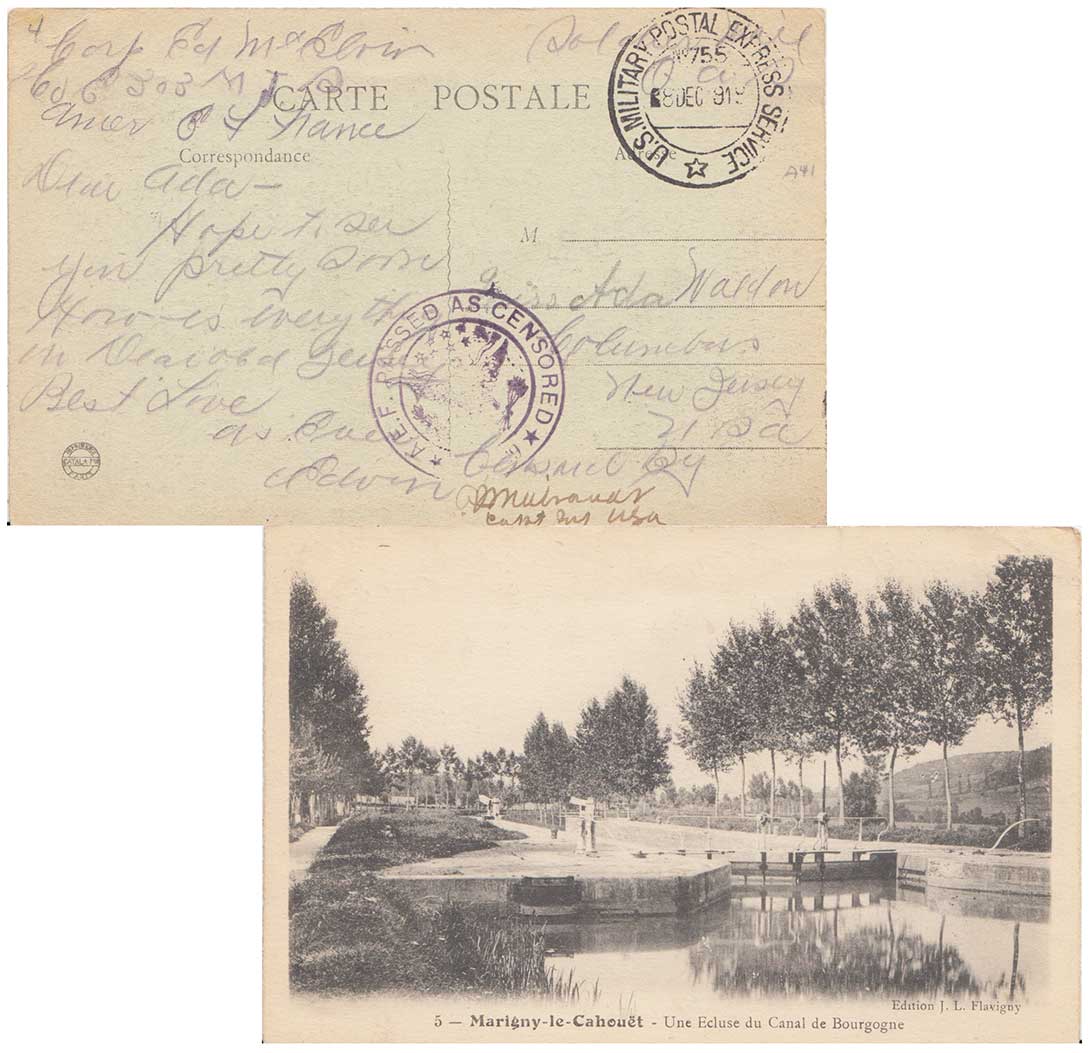 4
Corp Ed McElvin
Co C 303 M
Amer E F France
CARTE POSTALE
Correspondance
Adresse
U.S. MILITARY POSTAL EXPRESS SERVICE
No 755
8 DEC 191
A41
Dear Ada-
Hope to see
you pretty soon
How is everything
in
Best Love
as Ever
Edwin
M
Miss Ada Waldon
Columbus
New Jersey
A.E.F. PASSED AS CENSORED
Censored by
Capt USA
CATALA
PARIS
Edition J. L. Flavigny
5 — Marigny-le-Cahouët - Une Ecluse du Canal de Bourgogne